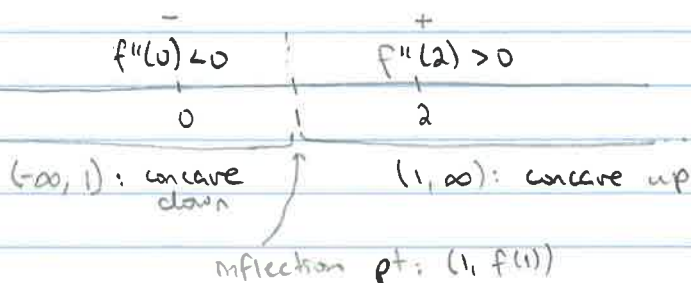 - +
f"(0) < 0 f"(2) > 0
0 1 2
(-∞, 1): concave down (1, ∞): concave up
inflection pt: (1, f(1))